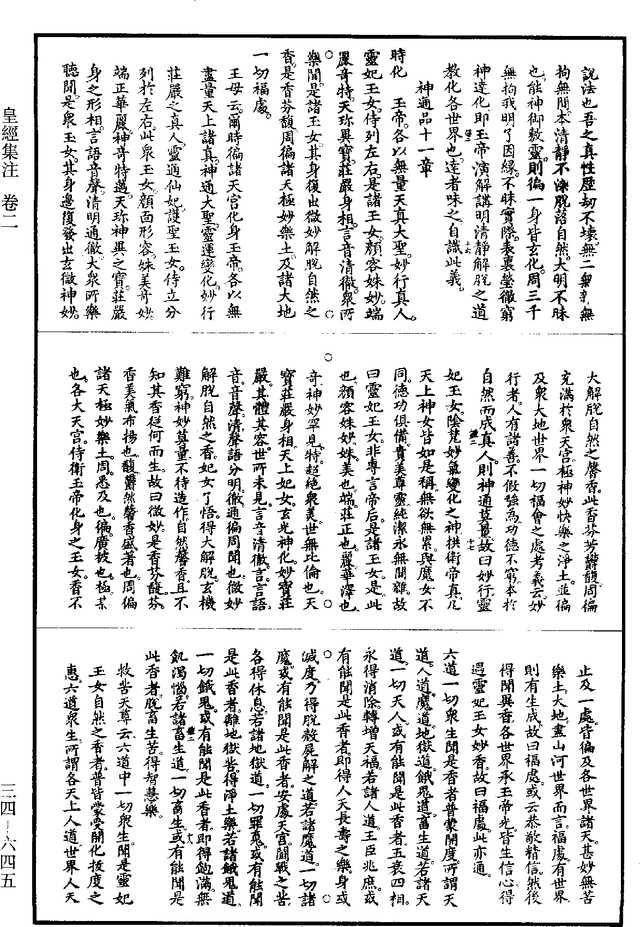 說法也吾之真性歷劫不壞無二無新無
拘無閒本清靜不染脫落自然大明不昧
也能神御敷靈則徧一身皆玄化周三千
無拘我明了因緣不昧實際表裏瑩徹窮
神達化即玉帝演解講明清靜解脫之道
教化各世界也達者味之自識此義
神通品十一章
時化玉帝各以無量天真大聖妙行真人
靈妃玉女侍列左右是諸玉女顏容姝妙端
嚴奇特天珎異寶莊嚴身相言音清徹衆所
樂聞是諸玉女其身復出微妙解脫自然之
香是香芬馥周徧諸天極妙樂土及諸大地
一切福處
王母云爾時徧諸天宮化身玉帝各以無
量天上諸真神通大聖靈運變化妙行
莊嚴之真人靈通仙妃護聖玉女侍立分
列於左右此衆玉女顏面形容姝美奇妙
端正華麗神奇特邁天珎神異之寶莊嚴
身之形相言語音聲清明通徹大衆所樂
聽聞是衆玉女其身邊復發出玄微神妙
大解脫自然之馨香此香芬芳馥周徧
充滿於衆天宮極神妙快樂之淨土並徧
及衆大地世界一切福會之處考義云妙
行者人有諸善不假強為功德不窮本於
自然而成真人則神通莫量故曰妙行靈
妃玉女陰梵妙炁變化之神拱衛帝真凡
天上神女皆如是稱無欲無累與魔女不
同德功俱備貴美尊靈純潔永無間雜故
曰靈妃玉女非專言帝后是諸玉女是此
也顏容姝妙姝美也端莊正也嚴華澤也
奇神妙罕見特超絕衆美世無比倫也天
寶莊嚴身相天上妃女玄光神化妙寶莊
嚴其體其容世所未見言音清徹言言語
音音聲清聲語分明徹通徧周聞也微妙
解脫自然之香妃女了悟得大解脫玄機
難窮神妙莫量不待造作自然馨香且不
知其香從何而生故曰微妙是香芬馥芬
香美氣布揚也馥鬱然馨香盛著也周徧
諸天極妙樂土周悉及也徧廣被也極某
也各大天宮侍衛玉帝化身之玉女香不
止及一處皆徧及各世界諸天甚妙無苦
樂土大地盡山河世界而言福處有世界
則有生成故曰福處或云恭敬精信然後
得聞異香各世界承玉帝光皆生信心得
遇靈妃玉女妙香故曰福處此亦通
六道一切衆生聞是香者普蒙開度所謂天
道人道魔道地獄道餓鬼道畜生道若諸天
道一切天人或有能聞是此香者五衰四相
永得消除轉增天福若諸人道王臣兆庶或
有能聞是此香者即得人天長壽之樂身或
滅度乃得脫殺屍解之道若諸魔道一切諸
魔或有能聞是此香者安處天宮鬪戰之苦
各得休息若諸地獄道一切罪鬼或有能聞
是此香者離地獄苦得淨土樂若諸餓鬼道
一切餓鬼或有能聞是此香者即得飽滿無
飢渴惱若諸畜生道一切畜生或有能聞是
此香者脫畜生苦得智慧樂
救苦天尊云六道中一切衆生聞是靈妃
玉女自然之香者普皆蒙蒙開化拔度之
惠六道衆生所謂各天上人道世界人天
皇經集注 卷二
三四—六四五